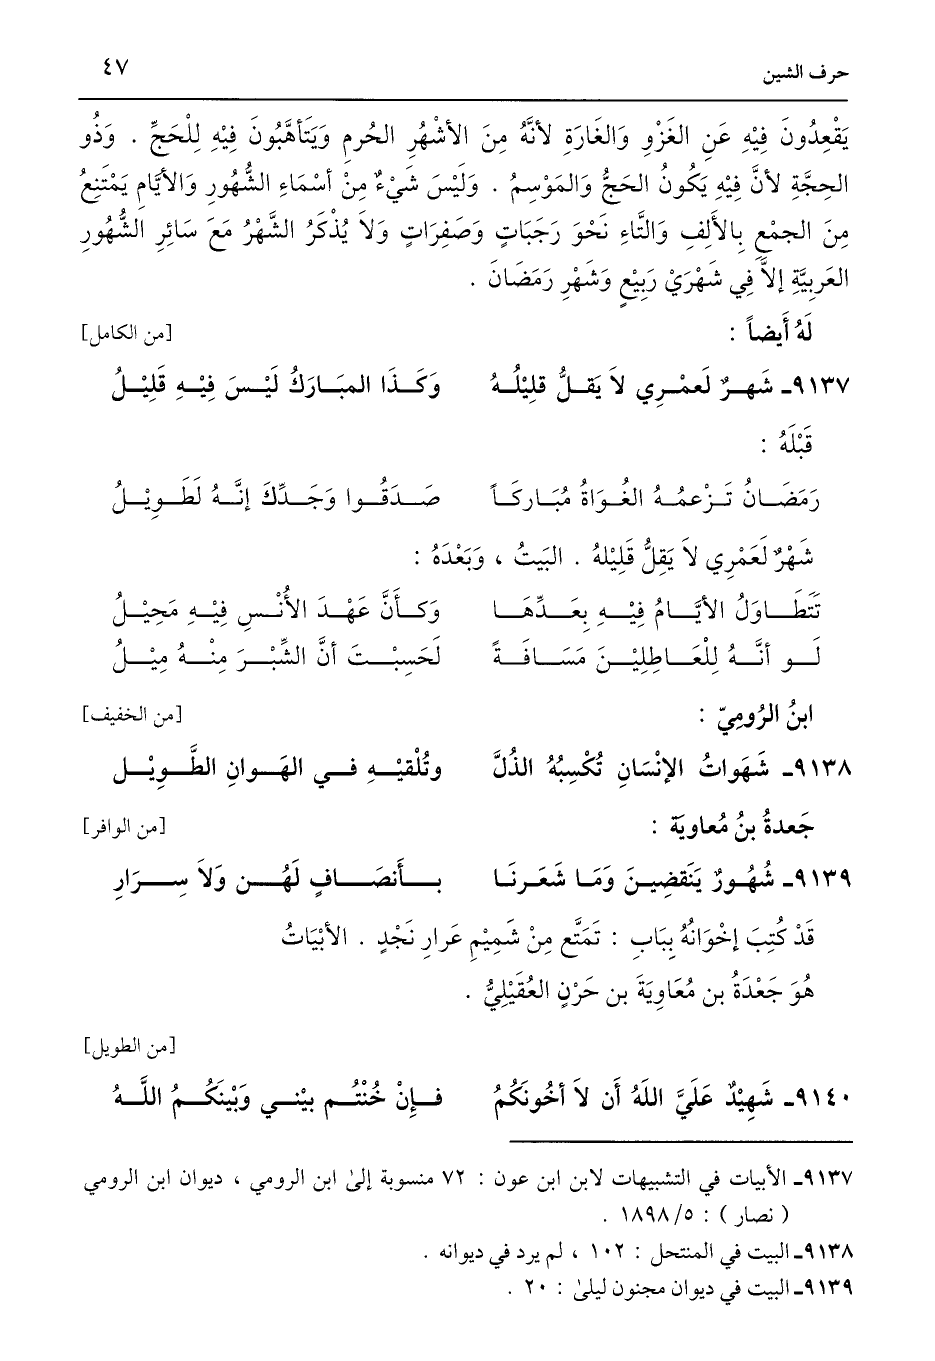 حرف الشين ٤٧
يَقْعِدُونَ فِيْهِ عَنِ الغَزْوِ وَالغَارَةِ لأنَّهُ مِنَ الأشْهُرِ الحُرمِ وَيَتَأهَّبُونَ فِيْهِ لِلْحَجِّ . وَذُو
الحِجَّةِ لأنَّ فِيْهِ يَكُونُ الحَجُّ وَالمَوْسِمُ . وَلَيْسَ شَيْءٌ مِنْ أسْمَاءِ الشُّهُورِ وَالأيَّامِ يَمْتَنِعُ
مِنَ الجمْعِ بِالألِفِ وَالتَّاءِ نَحْوَ رَجَبَاتٍ وَصَفِرَاتٍ وَلاَ يُذْكَرُ الشَّهْرُ مَعَ سَائِرِ الشُّهُورِ
العَرَبِيَّةِ إلاَّ فِي شَهْرَيْ رَبِيْعٍ وَشَهْرِ رَمَضَانَ .
لَهُ أَيضاً : [من الكامل]
٩١٣٧ـ شَهرٌ لَعمْرِي لاَ يَقلُّ قلِيْلُهُ وَكَذَا المبَارَكُ لَيْسَ فِيْهِ قَلِيْلُ
قَبْلَهُ :
رَمَضَانُ تَزْعمُهُ الغُوَاةُ مُبَارَكَاً صَدَقُوا وَجَدِّكَ إنَّهُ لَطَوِيْلُ
شَهْرٌ لَعَمْرِي لاَ يَقِلُّ قَلِيْلهُ . البَيتُ ، وَبَعْدَهُ :
تَتَطَاوَلُ الأيَّامُ فِيْهِ بِعَدِّهَا وَكَأنَّ عَهْدَ الأُنْسِ فِيْهِ مَحِيْلُ
لَو أنَّهُ لِلْعَاطِلِيْنَ مَسَافَةً لَحَسِبْتَ أنَّ الشِّبْرَ مِنْهُ مِيْلُ
ابنُ الرُومِيّ : [من الخفيف]
٩١٣٨ـ شَهَواتُ الإنْسَانِ تُكْسِبُهُ الذُلَّ وتُلْقيْهِ في الهَوانِ الطَّوِيْلِ
جَعدةُ بنُ مُعاويَة : [من الوافر]
٩١٣٩ـ شُهُورٌ يَنَقضِينَ وَمَا شَعَرنَا بأَنصَافٍ لَهُن وَلاَ سِرَارِ
قَدْ كُتِبَ إخْوَانُهُ بِبَابِ : تَمَتَّع مِنْ شَمِيْمِ عَرارِ نَجْدٍ . الأبْيَاتُ
هُوَ جَعْدَةُ بن مُعَاوِيَةَ بن حَرْنٍ العُقَيْلِيُّ .
[من الطويل]
٩١٤٠ـ شَهِيْدٌ عَلَيَّ اللهُ أَن لاَ أخُونَكُمُ فإنْ خُنْتُم بيْني وَبَيْنَكُمُ اللَّهُ
٩١٣٧ـ الأبيات في التشبيهات لابن ابن عون : ٧٢ منسوبة إلىٰ ابن الرومي ، ديوان ابن الرومي
( نصار ) : ١٨٩٨/٥ .
٩١٣٨ـ البيت في المنتحل : ١٠٢ ، لم يرد في ديوانه .
٩١٣٩ـ البيت في ديوان مجنون ليلىٰ : ٢٠ .